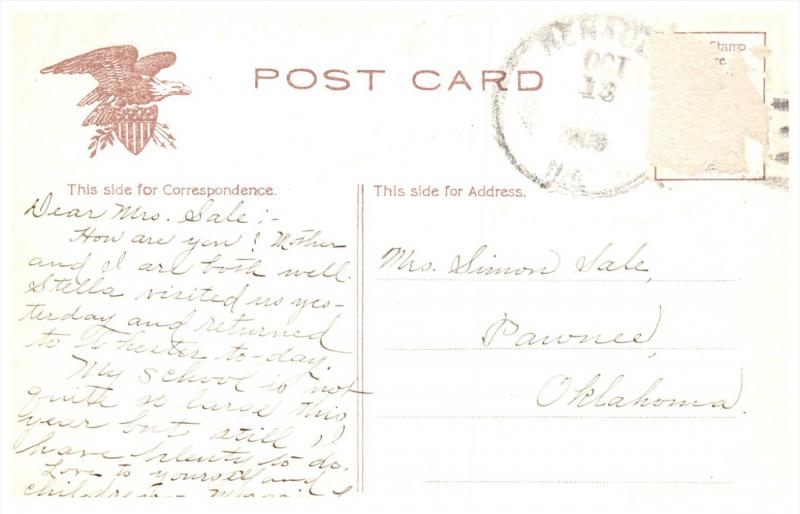 POST CARD
OCT
13
Stamp
This side for Correspondence.
This side for Address.
Dear Mrs. Sale:-
How are you? Mother
and I are both well.
Stella visited us yes-
terday and returned
to Ft. Chester to-day.
My school is not
quite so large this
year but still I
have plenty to do.
Love to yourself and
children -
Mrs. Simon Sale,
Pawnee,
Oklahoma.